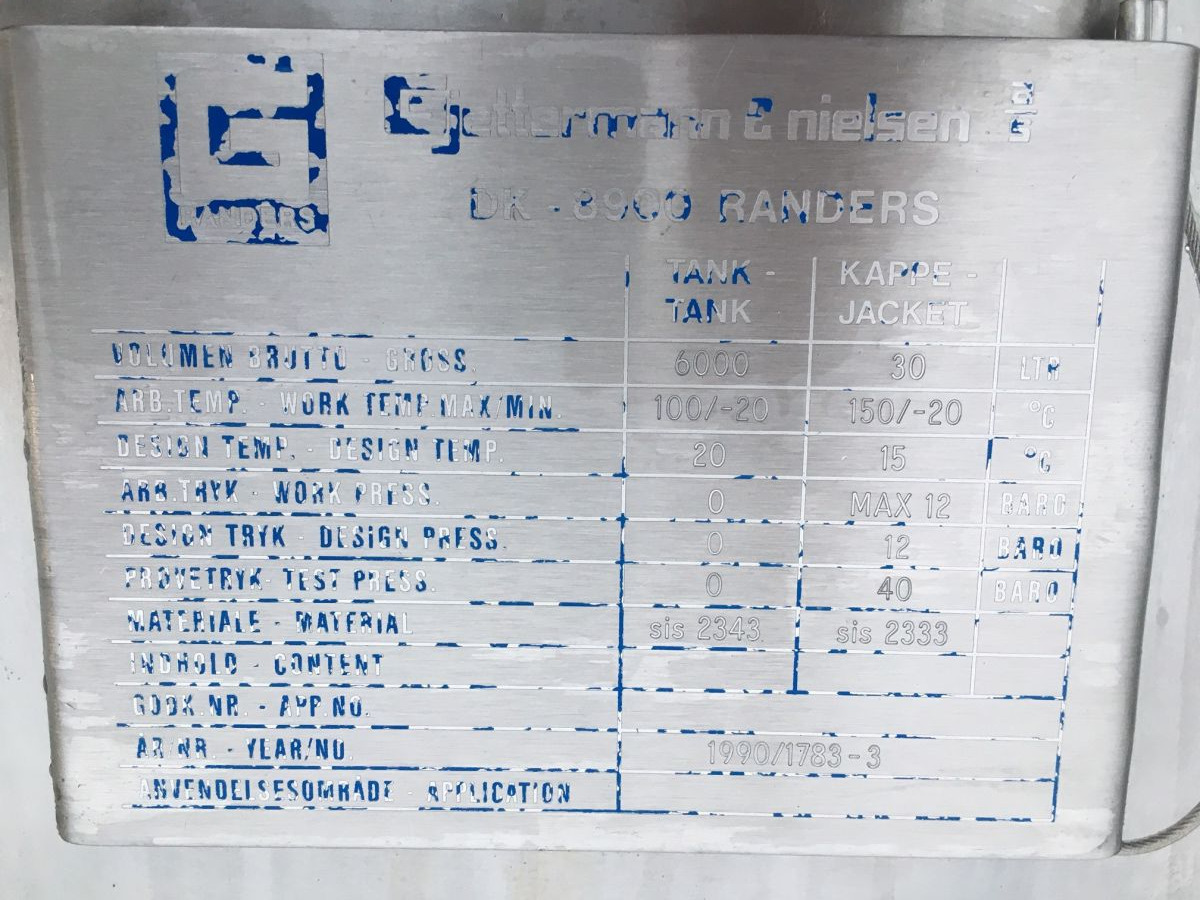 G
RANDERS
Gjettermann & nielsen aps
DK - 8900 RANDERS
TANK - KAPPE -
TANK JACKET
VOLUMEN BRUTTO - GROSS. 6000 30 LTR
ARB.TEMP. - WORK TEMP.MAX/MIN. 100/-20 150/-20 °C
DESIGN TEMP. - DESIGN TEMP. 20 15 °C
ARB.TRYK - WORK PRESS. 0 MAX 12 BARO
DESIGN TRYK - DESIGN PRESS. 0 12 BARO
PRØVETRYK- TEST PRESS. 0 40 BARO
MATERIALE - MATERIAL sis 2343 sis 2333
INDHOLD - CONTENT
GODK.NR. - APP.NO.
ÅR/NR. - YEAR/NO. 1990/1783-3
ANVENDELSESOMRÅDE - APPLICATION